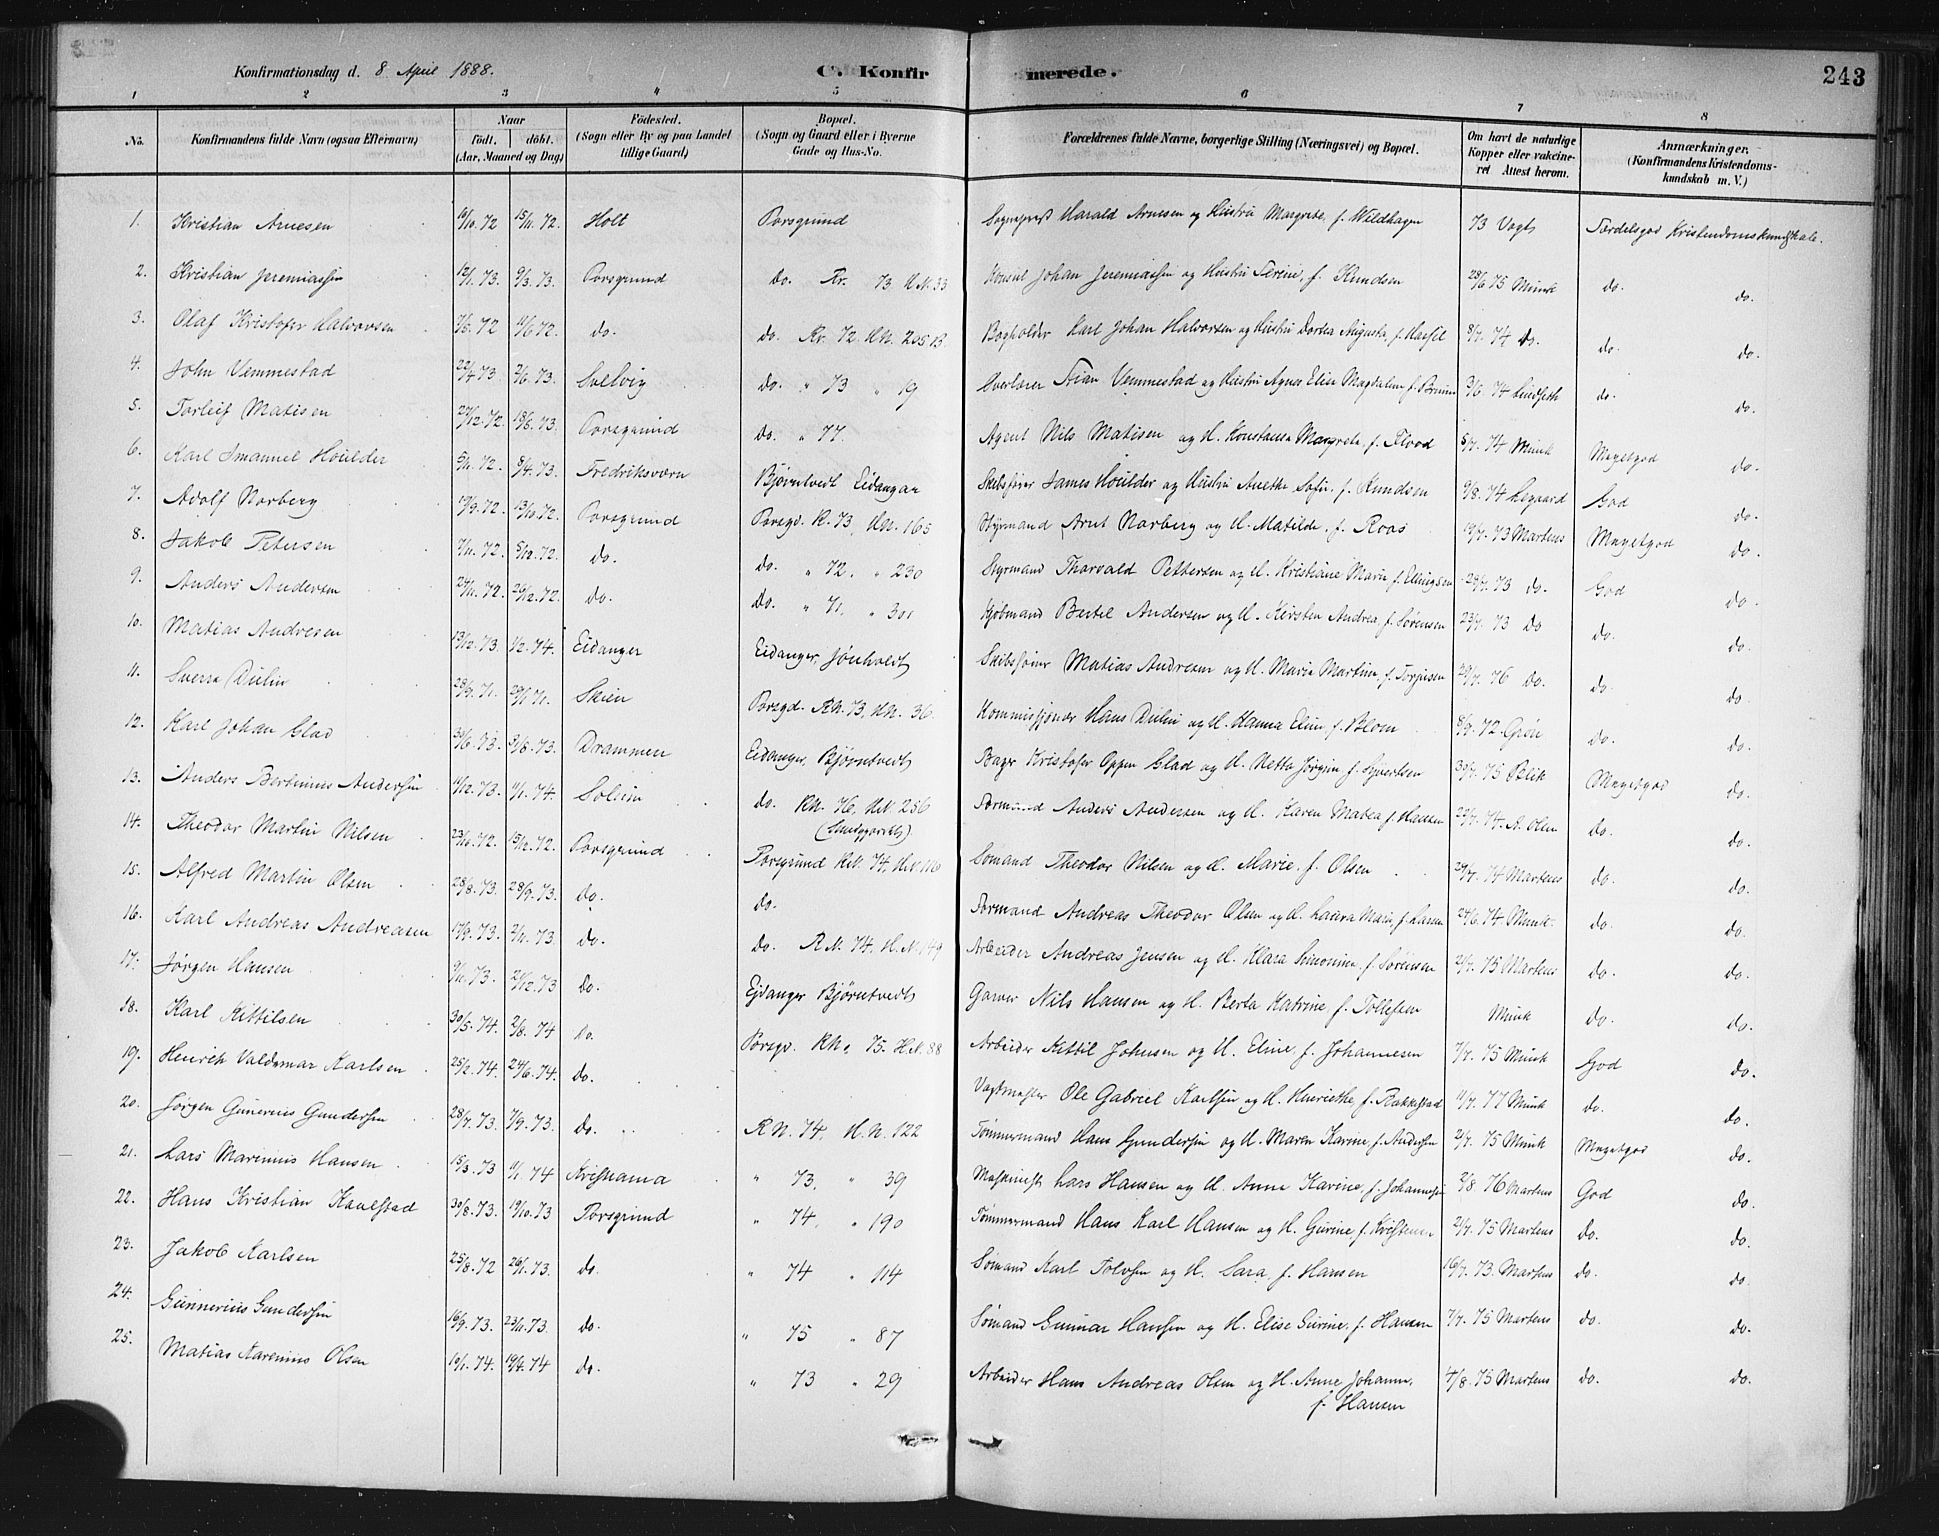 Konfirmationsdag d. 8 April 1888. C. Konfirmerede. 243
1 2 3 4 5 6 7 8
No. Konfirmandens fulde Navn (ogsaa Efternavn) Naar født. døbt. (Aar, Maaned og Dag) Fødested. (Sogn eller By og paa Landet tillige Gaard) Bopæl. (Sogn og Gaard eller i Byerne Gade og Hus-No. Forældrenes fulde Navne, borgerlige Stilling (Næringsvei) og Bopæl. Om havt de naturlige Kopper eller vakcineret Attest herom. Anmærkninger. (Konfirmandens Kristendomskundskab m. V.)
1. Kristian Arnesen 16/10 72 15/11. 72. Holt Porsgrund Sogneprest Harald Arnesen og Hustru Margrete, f. Wildhagen 73 Vogt Særdelsgod Kristendomskundskab.
2. Kristian Jeremiassen 12/1. 73. 9/3. 73. Porsgrund do. Kr. 73 H.N. 33 Konsul Johan Jeremiassen og Hustru Serine, f. Knudsen 28/6 75 Munk do. do.
3. Olaf Kristofer Halvorsen 7/5. 72 11/6 72. do. do. Kr. 72. H.N. 205 B Bogholder Karl Johan Halvorsen og Hustru Dortea Augusta, f. 8/7. 74 do. do. do.
4. John Vemmestad 22/4 73 2/6. 73. Solvig do. " 73 " 19 Overlærer Stian Vemmestad og Hustru Agnes Elise Magdalene f. Bruun 3/6. 74 Lindseth do. do.
5. Torleif Matisen 27/12. 72. 18/6. 73. Porsgrund do. " 77. Agent Nils Matisen og H. Konstanse Margrete, f. Flood 5/7. 74 Munk Megetgod do.
6. Karl Imanuel Houlder 5/11. 72. 8/4. 73. Fredriksværn Bjørntvedt Eidanger Skibsfører James Houlder og Hustru Anethe Sofie, f. Knudsen 9/8. 74 Aagaard God do.
7. Adolf Norberg 19/9. 72. 13/10. 72. Porsgrund Porsgd. R. 73, H.N. 165 Styrmand Arnt Norberg og H. Matilde, f. Roos 19/7. 73 Martens Megetgod do.
8. Jakob Petersen 7/11. 72. 5/12. 72. do. do. " 72. " 230 Styrmand Thorvald Pettersen og H. Kristiane Marie f. Ellingsen 28/7. 73 do. God do.
9. Anders Andersen 24/11. 72. 26/12. 72. do. do. " 71. " 301 Kjøbmand Bertel Andersen og H. Kirsten Andrea, f. Sørensen 23/7. 73 do do. do.
10. Matias Andresen 13/12. 73. 1/2. 74. Eidanger Eidanger, Jønholdt Skibsfører Matias Andresen og H. Maria Martine, f. Torjusen 20/7. 76 do. do. do.
11. Sverre Dulin 28/9. 71. 29/11 71. Skien Porsgd. R.N. 73, H.N. 36. Kommissjonær Hans Dulin og H. Hanna Eline f. Blom 8/7. 72. Grøn do. do.
12. Karl Johan Glad 30/6. 73. 3/8. 73. Drammen Eidanger, Bjørntvedt Bager Kristofer Oppen Glad og H. Netta Jørgine f. Sjvertsen 30/7. 75 Blik Megetgod do.
13. Anders Bertinius Andersen 11/12. 73. 11/1. 74. Solum do. R.N. 76, H.N. 286 Formand Anders Andersen og H. Karen Matea f. Hansen 22/7. 74. A. Olsen do. do.
14. Theodor Martin Nilsen 23/10. 72. 15/12. 72. Porsgrund Porsgrund R.N. 74, H.N. 110 Sømand Theodor Nilsen og H. Marie, f. Olsen 29/7. 74 Martens do. do.
15. Alfred Martin Olsen 28/8. 73. 28/9. 73. do. do. Formand Andreas Theodor Olsen og H. Laura Marie, f. Larsen 24/6. 74 Munk do. do.
16. Karl Andreas Andreasen 17/9. 73. 2/11. 73. do. do. R.N. 74, H.N. 149 Arbeider Andreas Jensen og H. Klara Simonine, f. Sørensen 2/7. 75 Martens do. do.
17. Jørgen Hansen 9/11. 73. 21/12. 73 do. Ejdanger Bjørntvedt Garver Nils Hansen og H. Berta Katrine f. Tollefsen Munk do. do.
18. Karl Kittilsen 30/5. 74. 2/8. 74 do. Porsgd. R.N. 75. H.N. 88 Arbeider Kittil Johnsen og H. Eline, f. Johannesen 7/7. 75 Munk God do.
19. Henrik Valdemar Karlsen 25/2. 74. 24/6. 74. do. Vagtmester Ole Gabriel Karlsen og H. Henriethe, f. Rakkestad 11/7. 77 Munk do. do.
20. Jørgen Gunerius Gundersen 28/7. 73. 7/9. 73. do. R.N. 74, H.N. 122 Tømmermand Hans Gundersen og H. Maren Karine, f. Andersen 2/7. 75 Munk Megetgod do.
21. Lars Marinius Hansen 15/3. 73 11/1. 74 Kristiania " 73, " 39 Maskinist Lars Hansen og H. Anne Karine, f. Johannesen 2/8. 76 Martens God do.
22. Hans Kristian Kaalstad 30/8. 73. 19/10. 73 Porsgrund " 74, " 190 Tømmermand Hans Karl Hansen og H. Gurine, f. Kristensen 2/7. 75 Martens do. do.
23. Jakob Karlsen 25/8. 72 26/1. 73. do. " 74 " 114 Sømand Karl Tolvsen og H. Sara, f. Hansen 16/7. 73. Martens do. do.
24. Gunnerius Gundersen 16/9. 73. 23/11. 73. do. " 75 " 87 Sømand Gunnar Hansen og H. Elise Gurine, f. Hansen 7/7. 75 Martens do. do.
25. Matias Karenius Olsen 10/1. 74. 19/4. 74 do. " 73 " 29 Arbeider Hans Andreas Olsen og H. Anne Johanne, f. Hansen 4/8. 75 Martens do. do.